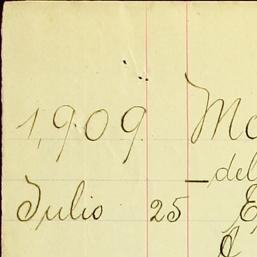 1,909 Mo
del
Julio 25 E